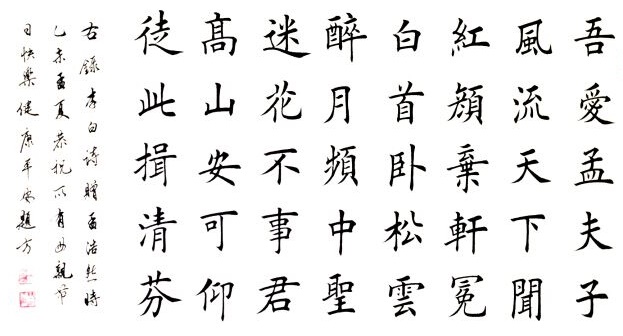 吾愛孟夫子
風流天下聞
紅顔棄軒冕
白首卧松雲
醉月頻中聖
迷花不事君
髙山安可仰
徒此揖清芬
右錄李白詩贈孟浩然時
乙未孟夏恭祝所有母親节
日快樂健康平安題方